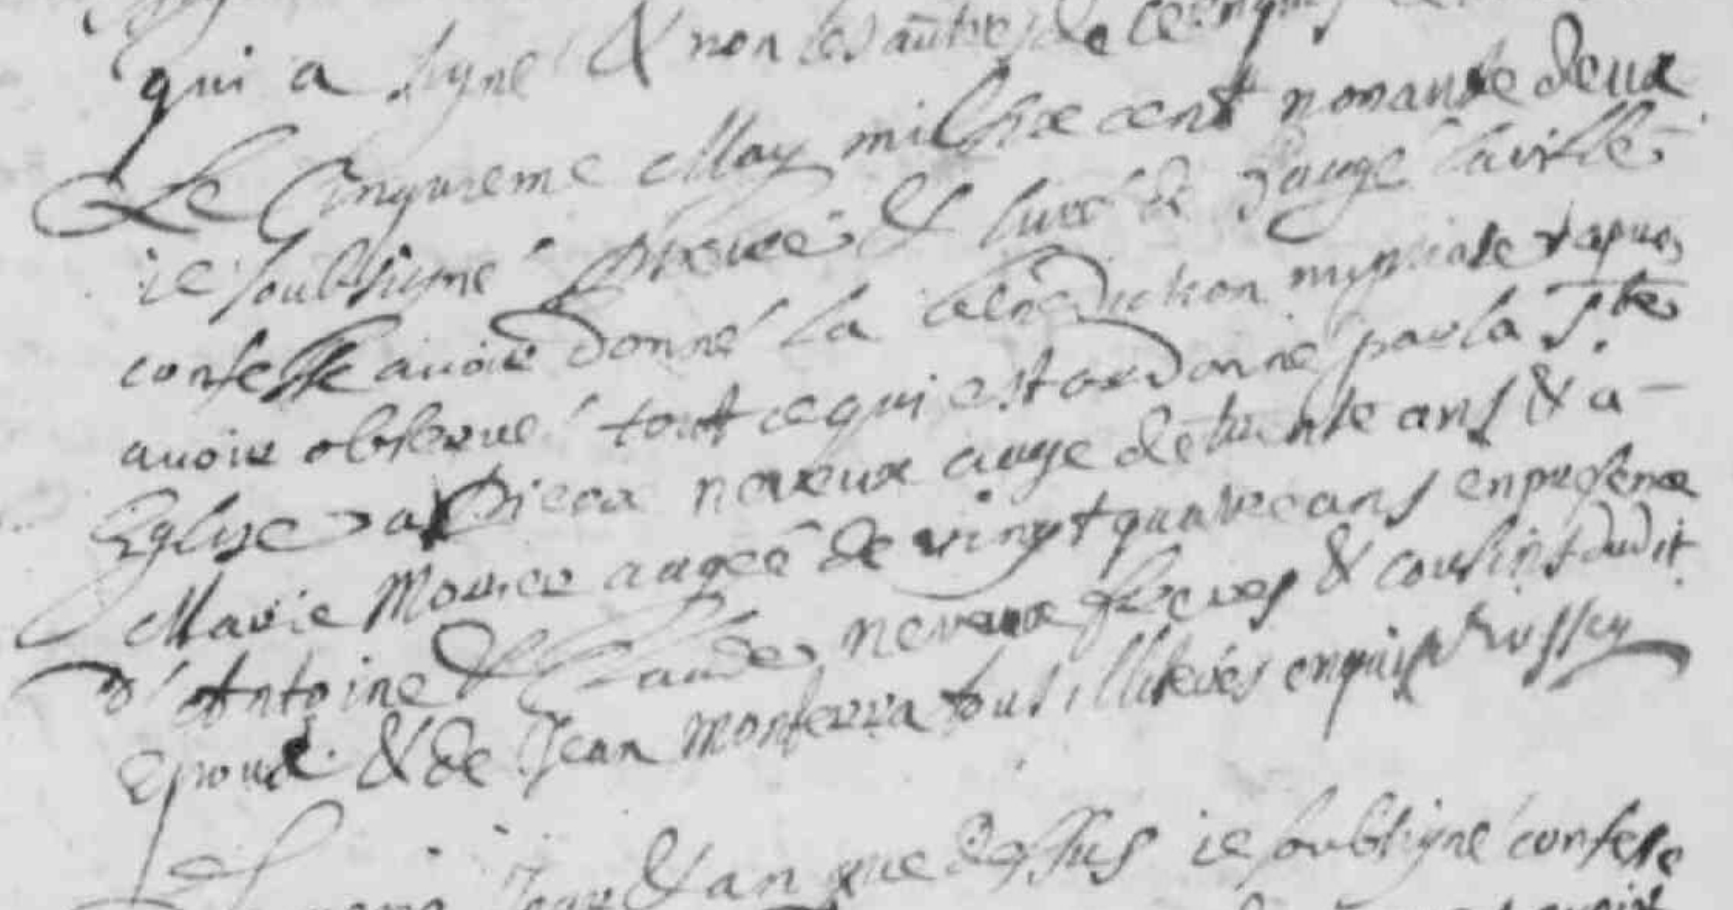 qui a signé & non les autres de ce enquis
Le Cinquieme May mil six cent nonante deux
ie soubsigné Prebtre & Curé de Daugé la ville
confesse auoir donné la benediction nuptiale apres
auoir obserué tout ce qui est ordonné par la Ste
Eglise a Pierre neveux aage de trente ans & a
Marie Morice aagée de vingt quatre ans en presence
d'Antoine & Claude neveux freres & cousins dudit
Epoux & de Jean Monferra tous illiterés enquis Russey
Jour & an que dessus ie soubsigné confesse